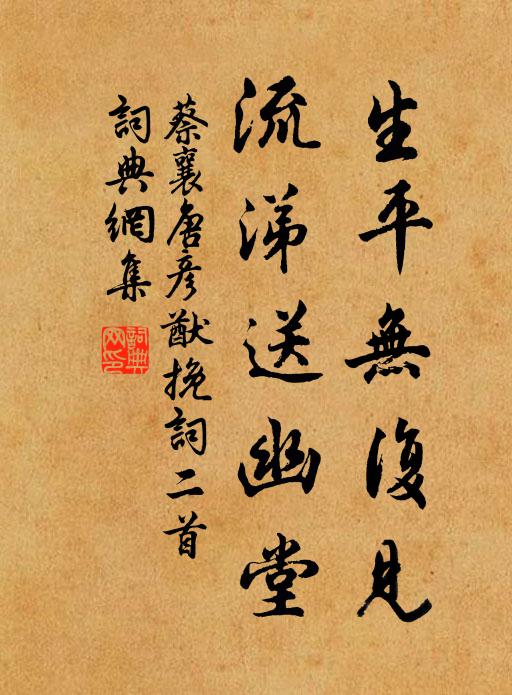 生平無復見
流涕送幽堂
蔡襄唐彥猷挽詞二首
詞典網集
詞典網印